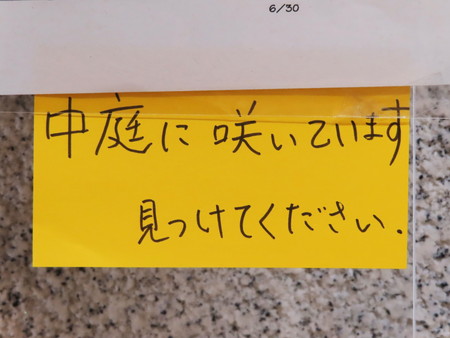 6/30
中庭に咲いています
見つけてください.